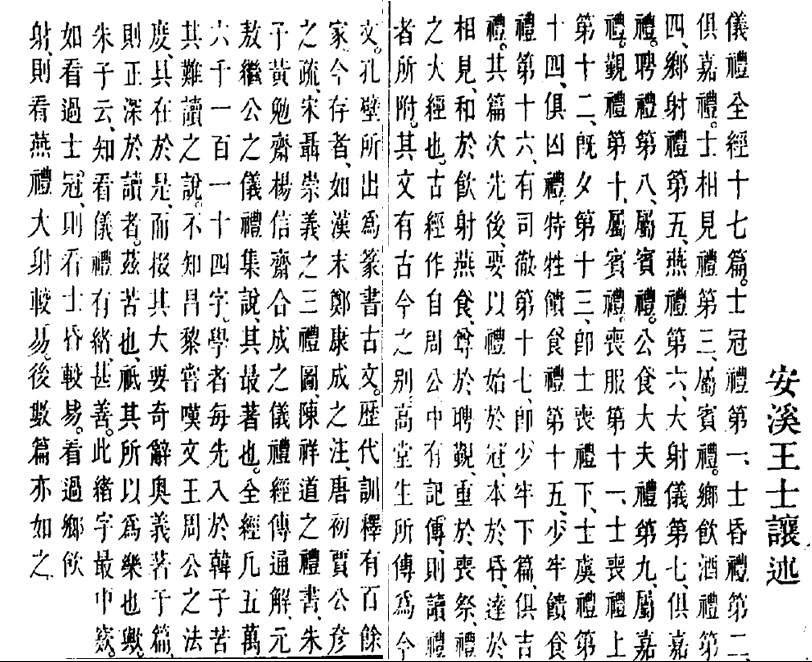 安溪王士讓述
儀禮全經十七篇。士冠禮第一、士昏禮第二、
俱嘉禮。士相見禮第三、屬賓禮。鄉飲酒禮第
四、鄉射禮第五、燕禮第六、大射儀第七、俱嘉
禮。聘禮第八、屬賓禮。公食大夫禮第九、屬嘉
禮。覲禮第十、屬賓禮。喪服第十一、士喪禮上
第十二、旣夕第十三、卽士喪禮下、士虞禮第
十四、俱凶禮。特牲饋食禮第十五、少牢饋食
禮第十六、有司徹第十七、卽少牢下篇、俱吉
禮。其篇次先後、要以禮始於冠、本於昏、達於
相見、和於飲射燕食、尊於聘覲、重於喪祭、禮
之大經也。古經作自周公中有記傳、則讀禮
者所附。其文有古今之別、高堂生所傳爲今
文。孔壁所出爲篆書古文。歷代訓釋有百餘
家今存者、如漢末鄭康成之注、唐初賈公彥
之疏、宋聶崇義之三禮圖、陳祥道之禮書、朱
子黃勉齋楊信齋合成之儀禮經傳通解、元
敖繼公之儀禮集說、其最著也。全經凡五萬
六千一百一十四字。學者每先入於韓子苦
其難讀之說。不知昌黎嘗嘆文王周公之法
度、具在於是、而掇其大要奇辭奧義著于篇、
則正深於讀者。茲苦也、祗其所以爲樂也歟。
朱子云、知看儀禮有緒、甚善。此緒字最中窾。
如看過士冠、則看士昏較易。看過鄉飲
射、則看燕禮大射較易。後數篇亦如之